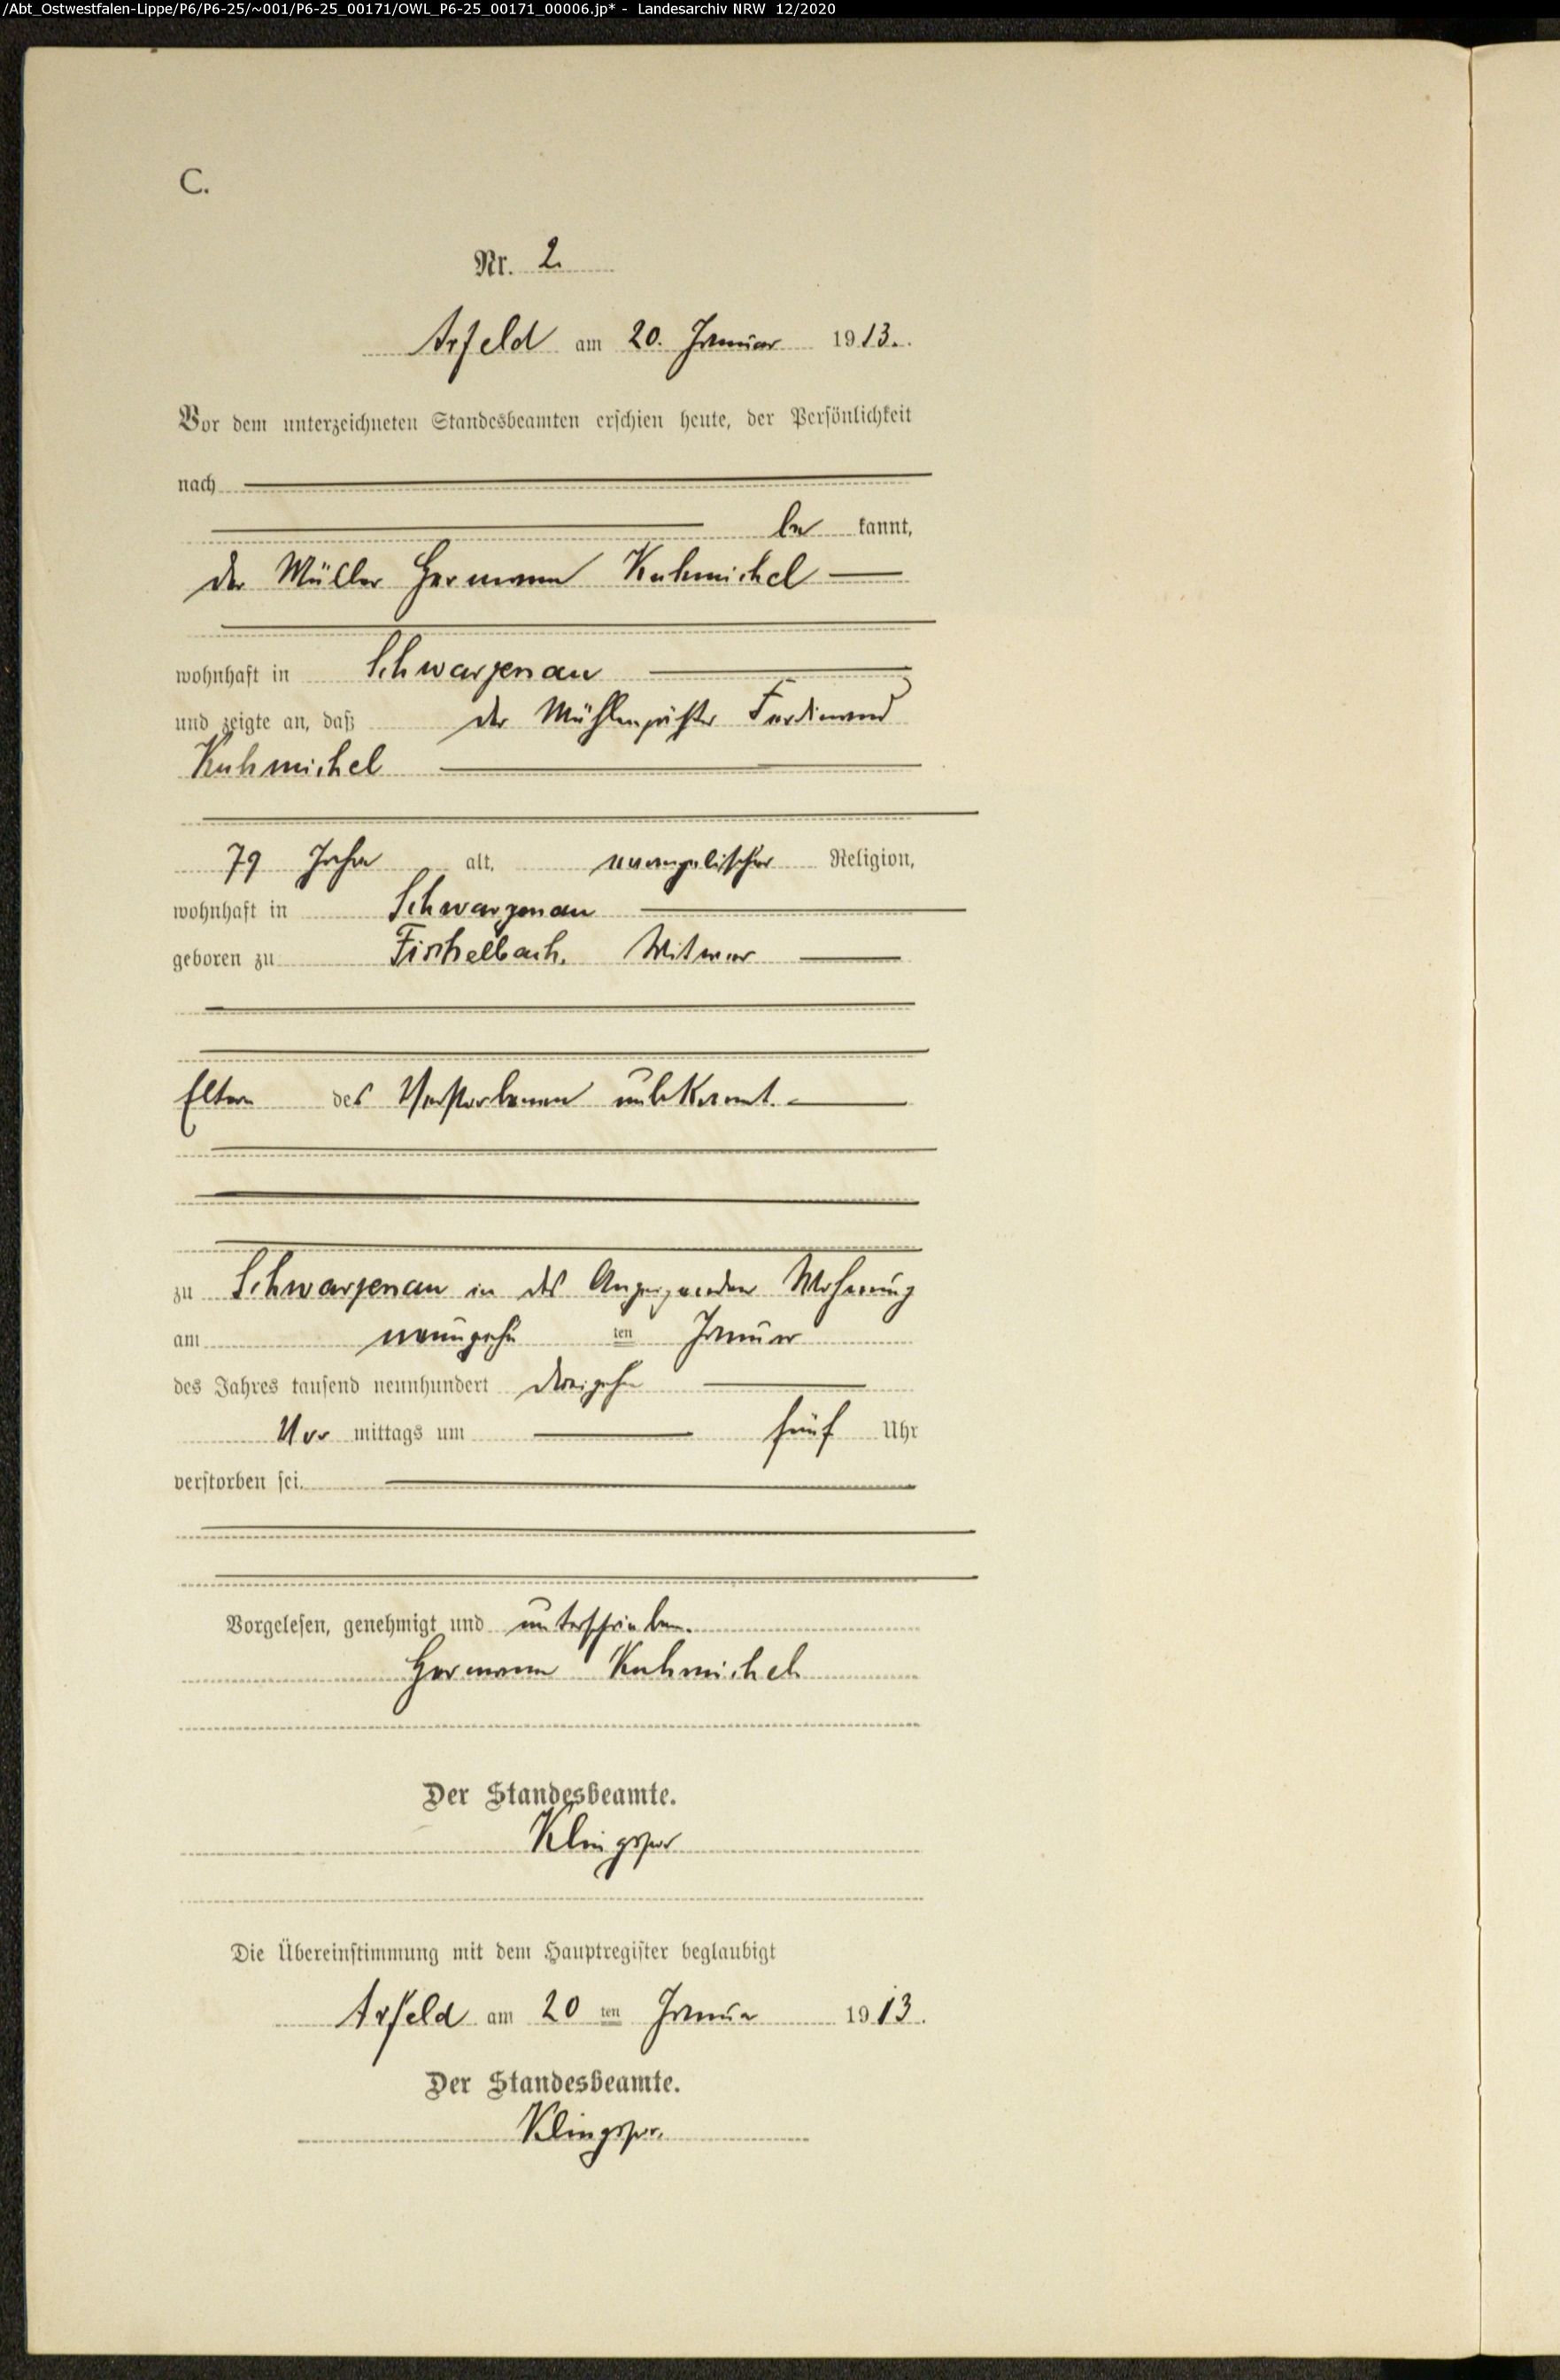 /Abt_Ostwestfalen-Lippe/P6/P6-25/~001/P6-25_00171/OWL_P6-25_00171_00006.jp* - Landesarchiv NRW 12/2020
C.
Nr. 2.
Arfeld am 20. Januar 1913.
Vor dem unterzeichneten Standesbeamten erschien heute, der Persönlichkeit
nach
be kannt,
der Müller Hermann Kuhmichel
wohnhaft in Schwarzenau
und zeigte an, daß der Mühlenpächter Ferdinand
Kuhmichel
79 Jahre alt, evangelischer Religion,
wohnhaft in Schwarzenau
geboren zu Fischelbach, Witwer
Eltern des Verstorbenen unbekannt.
zu Schwarzenau in des Anzeigenden Wohnung
am neunzehn ten Januar
des Jahres tausend neunhundert dreizehn
Vor mittags um fünf Uhr
verstorben sei.
Vorgelesen, genehmigt und unterschrieben.
Hermann Kuhmichel
Der Standesbeamte.
Klingspor
Die Übereinstimmung mit dem Hauptregister beglaubigt
Arfeld am 20 ten Januar 1913.
Der Standesbeamte.
Klingspor.